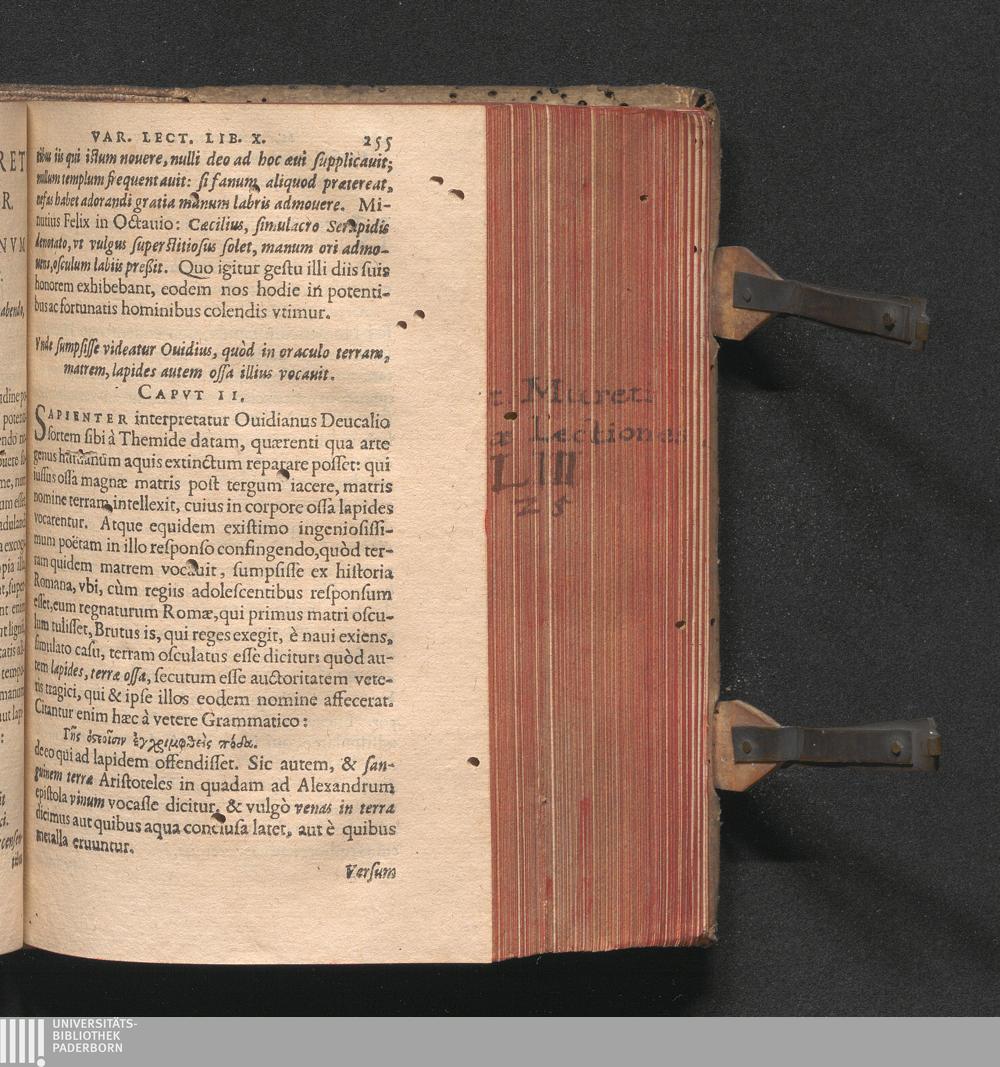 VAR. LECT. LIB. X. 255
tibus iis qui istum nouere, nulli deo ad hoc æui supplicauit;
nullum templum frequentauit: si fanum aliquod prætereat,
nefas habet adorandi gratia manum labris admouere. Mi-
nutius Felix in Octauio: Cæcilius, simulacro Serapidis
denotato, vt vulgus superstitiosus solet, manum ori admo-
uens, osculum labiis preßit. Quo igitur gestu illi diis suis
honorem exhibebant, eodem nos hodie in potenti-
bus ac fortunatis hominibus colendis vtimur.
Vnde sumpsisse videatur Ouidius, quòd in oraculo terram,
matrem, lapides autem ossa illius vocauit.
CAPVT II.
SAPIENTER interpretatur Ouidianus Deucalio
sortem sibi à Themide datam, quærenti qua arte
genus humanum aquis extinctum reparare posset: qui
iussus ossa magnæ matris post tergum iacere, matris
nomine terram intellexit, cuius in corpore ossa lapides
vocarentur. Atque equidem existimo ingeniosissi-
mum poëtam in illo responso confingendo, quòd ter-
ram quidem matrem vocauit, sumpsisse ex historia
Romana, vbi, cùm regiis adolescentibus responsum
esset, eum regnaturum Romæ, qui primus matri oscu-
lum tulisset, Brutus is, qui reges exegit, è naui exiens,
simulato casu, terram osculatus esse dicitur: quòd au-
tem lapides, terræ ossa, secutum esse auctoritatem vete-
ris tragici, qui & ipse illos eodem nomine affecerat.
Citantur enim hæc à vetere Grammatico:
Γῆς ὀστοῖσιν ἐγχριμφθεὶς πόδα.
de eo qui ad lapidem offendisset. Sic autem, & san-
guinem terræ Aristoteles in quadam ad Alexandrum
epistola vinum vocasse dicitur, & vulgò venas in terra
dicimus aut quibus aqua conclusa latet, aut è quibus
metalla eruuntur.
Versum
Mureti
Lectiones
L III
25
UNIVERSITÄTS-
BIBLIOTHEK
PADERBORN